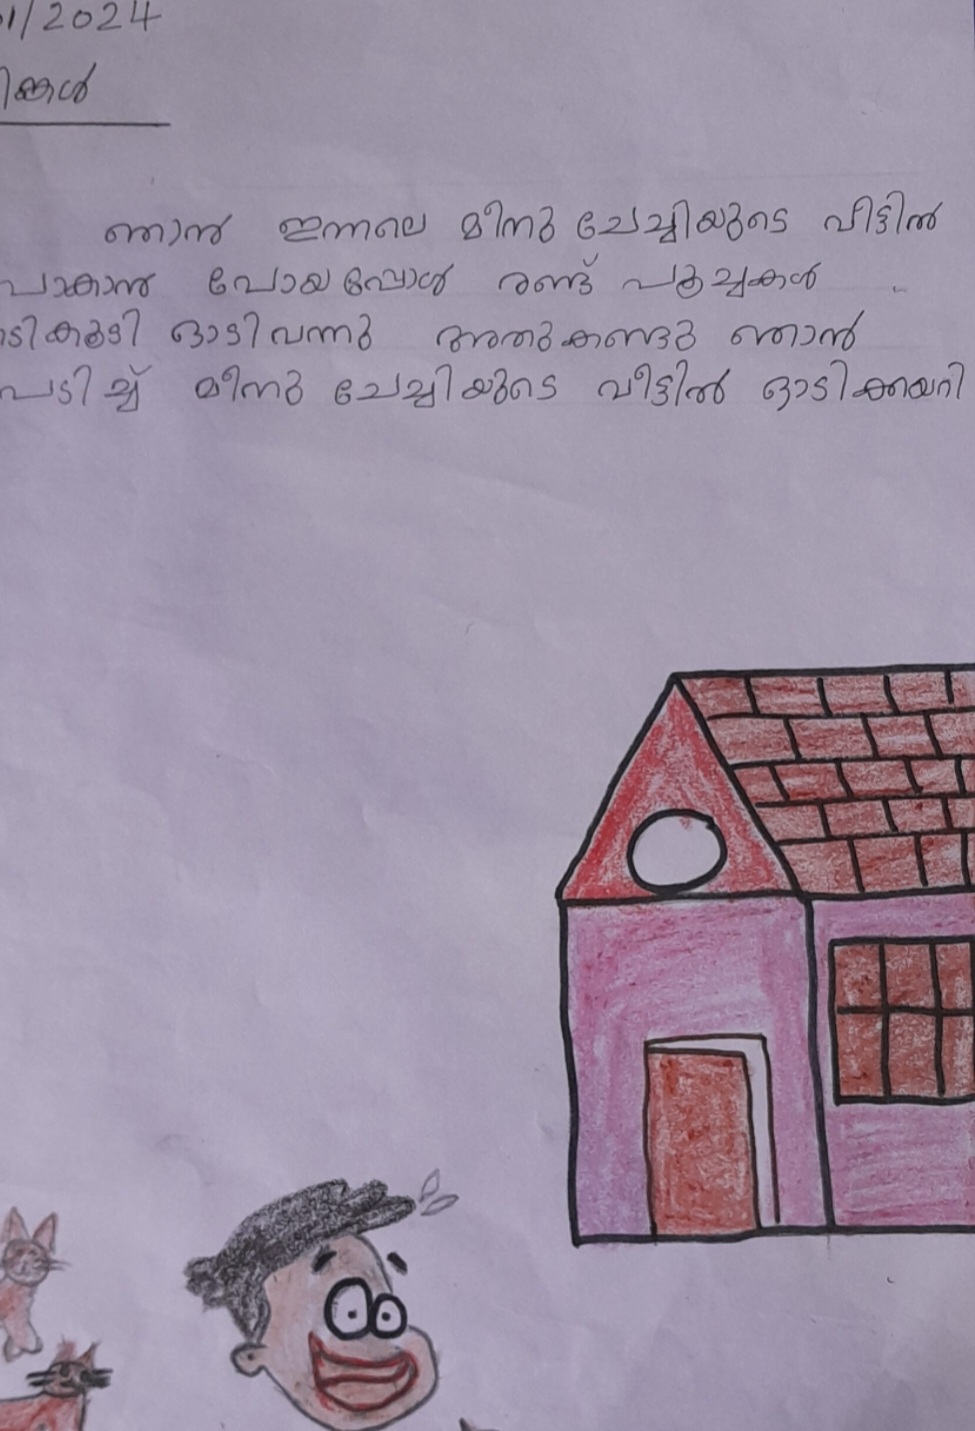 01/2024
ിക്കൾ
ഞാൻ ഇന്നലെ മീനു ചേച്ചിയുടെ വീട്ടിൽ
പോകാൻ പോയപ്പോൾ രണ്ട് പൂച്ചകൾ
ടികൂടി ഓടിവന്നു അതുകണ്ടു ഞാൻ
പേടിച്ച് മീനു ചേച്ചിയുടെ വീട്ടിൽ ഓടിക്കയറി